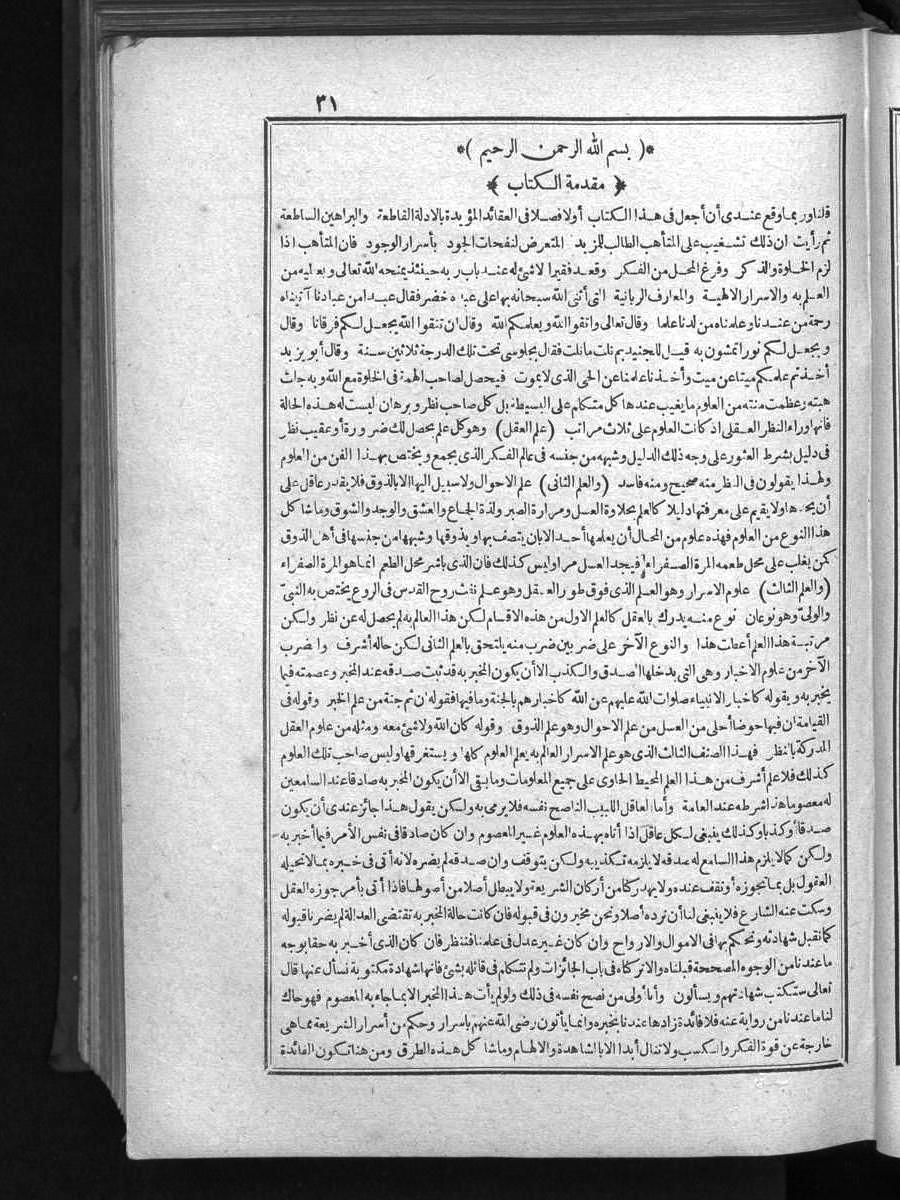 ٣١
*( بسم الله الرحمن الرحيم )*
﴿ مقدمة الكتاب ﴾
قلنا وربما وقع عندى أن أجعل فى هذا الكتاب أولا فصلا فى العقائد المؤيدة بالادلة القاطعة والبراهين الساطعة
ثم رأيت ان ذلك تشغيب على المتأهب الطالب للمزيد المتعرض لنفحات الجود بأسرار الوجود فان المتأهب اذا
لزم الخلوة والذكر وفرغ المحل من الفكر وقعد فقيرا لا شئ له عند باب ربه حينئذ يمنحه الله تعالى ويعطيه من
العلم به والاسرار الالهية والمعارف الربانية التى أثنى الله سبحانه بها على عبده خضر فقال عبدا من عبادنا آتيناه
رحمة من عندنا وعلمناه من لدنا علما وقال تعالى واتقوا الله ويعلمكم الله وقال ان تتقوا الله يجعل لكم فرقانا وقال
ويجعل لكم نورا تمشون به قيل للجنيد بم نلت ما نلت فقال بجلوسى تحت تلك الدرجة ثلاثين سنة وقال أبو يزيد
أخذتم علمكم ميتا عن ميت وأخذنا علمنا عن الحى الذى لا يموت فيحصل لصاحب الهمة فى الخلوة مع الله وبه جلت
هبته وعظمت منته من العلوم ما يغيب عندها كل متكلم على البسيطة بل كل صاحب نظر وبرهان ليست له هذه الحالة
فانها وراء النظر العقلى اذ كانت العلوم على ثلاث مراتب (علم العقل) وهو كل علم يحصل لك ضرورة أو عقيب نظر
فى دليل بشرط العثور على وجه ذلك الدليل وشبهه من جنسه فى عالم الفكر الذى يجمع ويختص بهذا الفن من العلوم
ولهذا يقولون فى النظر منه صحيح ومنه فاسد (والعلم الثانى) علم الاحوال ولا سبيل اليها الا بالذوق فلا يقدر عاقل على
أن يحدها ولا يقيم على معرفتها دليلا كالعلم بحلاوة العسل ومرارة الصبر ولذة الجماع والعشق والوجد والشوق وما شاكل
هذا النوع من العلوم فهذه علوم من المحال أن يعلمها أحد الا بان يتصف بها ويذوقها وشبهها من جنسها فى أهل الذوق
كمن يغلب على محل طعمه المرة الصفراء فيجد العسل مرا وليس كذلك فان الذى باشر محل الطعم انما هو المرة الصفراء
(والعلم الثالث) علوم الاسرار وهو العلم الذى فوق طور العقل وهو علم نفث روح القدس فى الروع يختص به النبىّ
والولىّ وهو نوعان نوع منه يدرك بالعقل كالعلم الاول من هذه الاقسام لكن هذا العالم به لم يحصل له عن نظر ولكن
مرتبة هذا العلم أعطت هذا والنوع الآخر على ضربين ضرب منه يلتحق بالعلم الثانى لكن حاله أشرف والضرب
الآخر من علوم الاخبار وهى التى يدخلها الصدق والكذب الا أن يكون المخبر به قد ثبت صدقه عند المخبر وعصمته فيما
يخبر به ويقوله كاخبار الانبياء صلوات الله عليهم عن الله كاخبارهم بالجنة وما فيها فقوله ان ثم جنة من علم الخبر وقوله فى
القيامة ان فيها حوضا أحلى من العسل من علم الاحوال وهو علم الذوق وقوله كان الله ولا شئ معه ومثله من علوم العقل
المدركة بالنظر فهذا الصنف الثالث الذى هو علم الاسرار العالم به يعلم العلوم كلها ويستغرقها وليس صاحب تلك العلوم
كذلك فلا علم أشرف من هذا العلم المحيط الحاوى على جميع المعلومات وما بقى الا أن يكون المخبر به صادقا عند السامعين
له معصوما هذا شرطه عند العامة وأما العاقل اللبيب الناصح نفسه فلا يرمى به ولكن يقول هذا جائز عندى أن يكون
صدقا أو كذبا وكذلك ينبغى لكل عاقل اذا أتاه بهذه العلوم غير المعصوم وان كان صادقا فى نفس الأمر فيما أخبر به
ولكن كما لا يلزم هذا السامع له صدقه لا يلزمه تكذيبه ولكن يتوقف وان صدقه لم يضره لانه أتى فى خبره بما لا تحيله
العقول بل بما تجوزه أو تقف عنده ولا يهدركا من أركان الشريعة ولا يبطل أصلا من أصولها فاذا أتى بأمر جوزه العقل
وسكت عنه الشارع فلا ينبغى لنا أن نرده أصلا ونحن مخيرون فى قبوله فان كانت حالة المخبر به تقتضى العدالة لم يضرنا قبوله
كما نقبل شهادته ونحكم بها فى الاموال والارواح وان كان غير عدل فى علمنا فننظر فان كان الذى أخبر به حقا بوجه
ما عندنا من الوجوه المصححة قبلناه والا تركناه فى باب الجائزات ولم نتكلم فى قائله بشئ فانها شهادة مكتوبة نسأل عنها قال
تعالى ستكتب شهادتهم ويسألون وأنا أولى من نصح نفسه فى ذلك ولو لم يأت هذا المخبر الا بما جاء به المعصوم فهو حاك
لنا ما عندنا من رواية عنه فلا فائدة زادها عندنا بخبره وانما يأتون رضى الله عنهم باسرار وحكم من أسرار الشريعة مما هى
خارجة عن قوة الفكر والكسب ولا تنال أبدا الا بالمشاهدة والالهام وما شاكل هذه الطرق ومن هنا تكون الفائدة